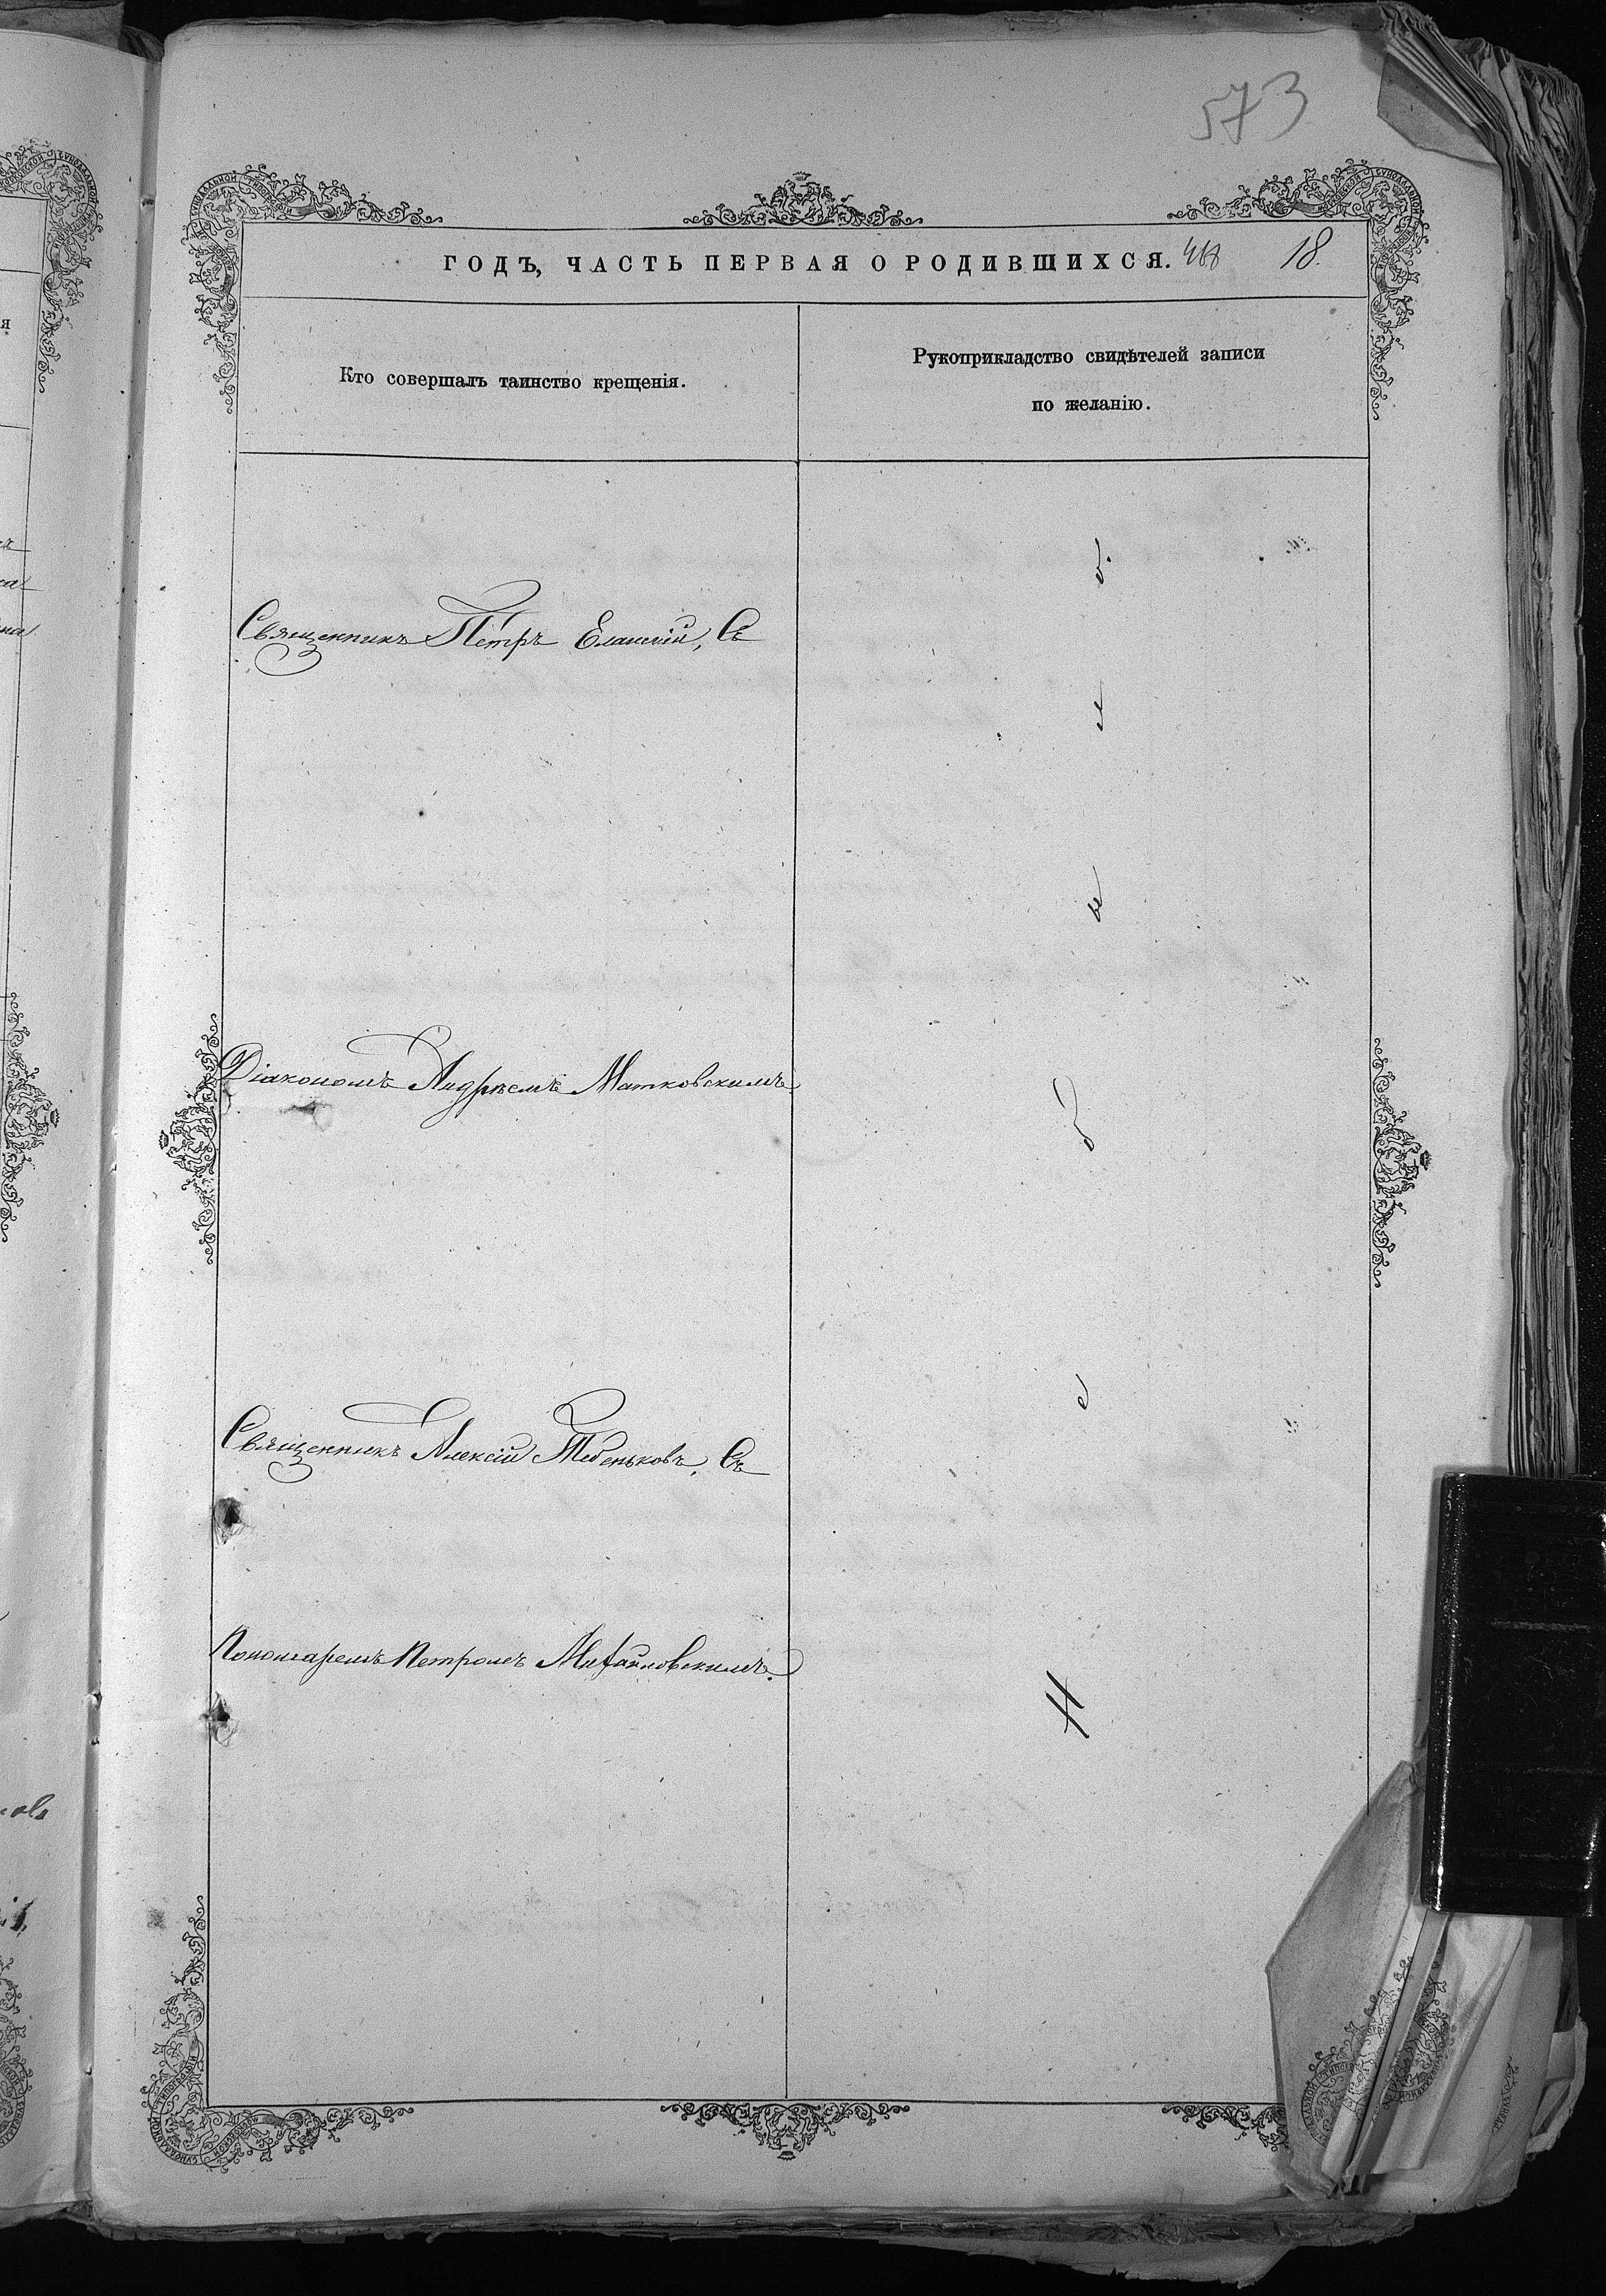 573
ГОДЪ, ЧАСТЬ ПЕРВАЯ О РОДИВШИХСЯ. 468 18.
Кто совершалъ таинство крещенія.
Рукоприкладство свидѣтелей записи
по желанію.
Священникъ Петръ Еланскій, Съ
Діакономъ Андреемъ Матковскимъ.
Священникъ Алексій Тебеньковъ, Съ
Пономаремъ Петромъ
Н
е
б